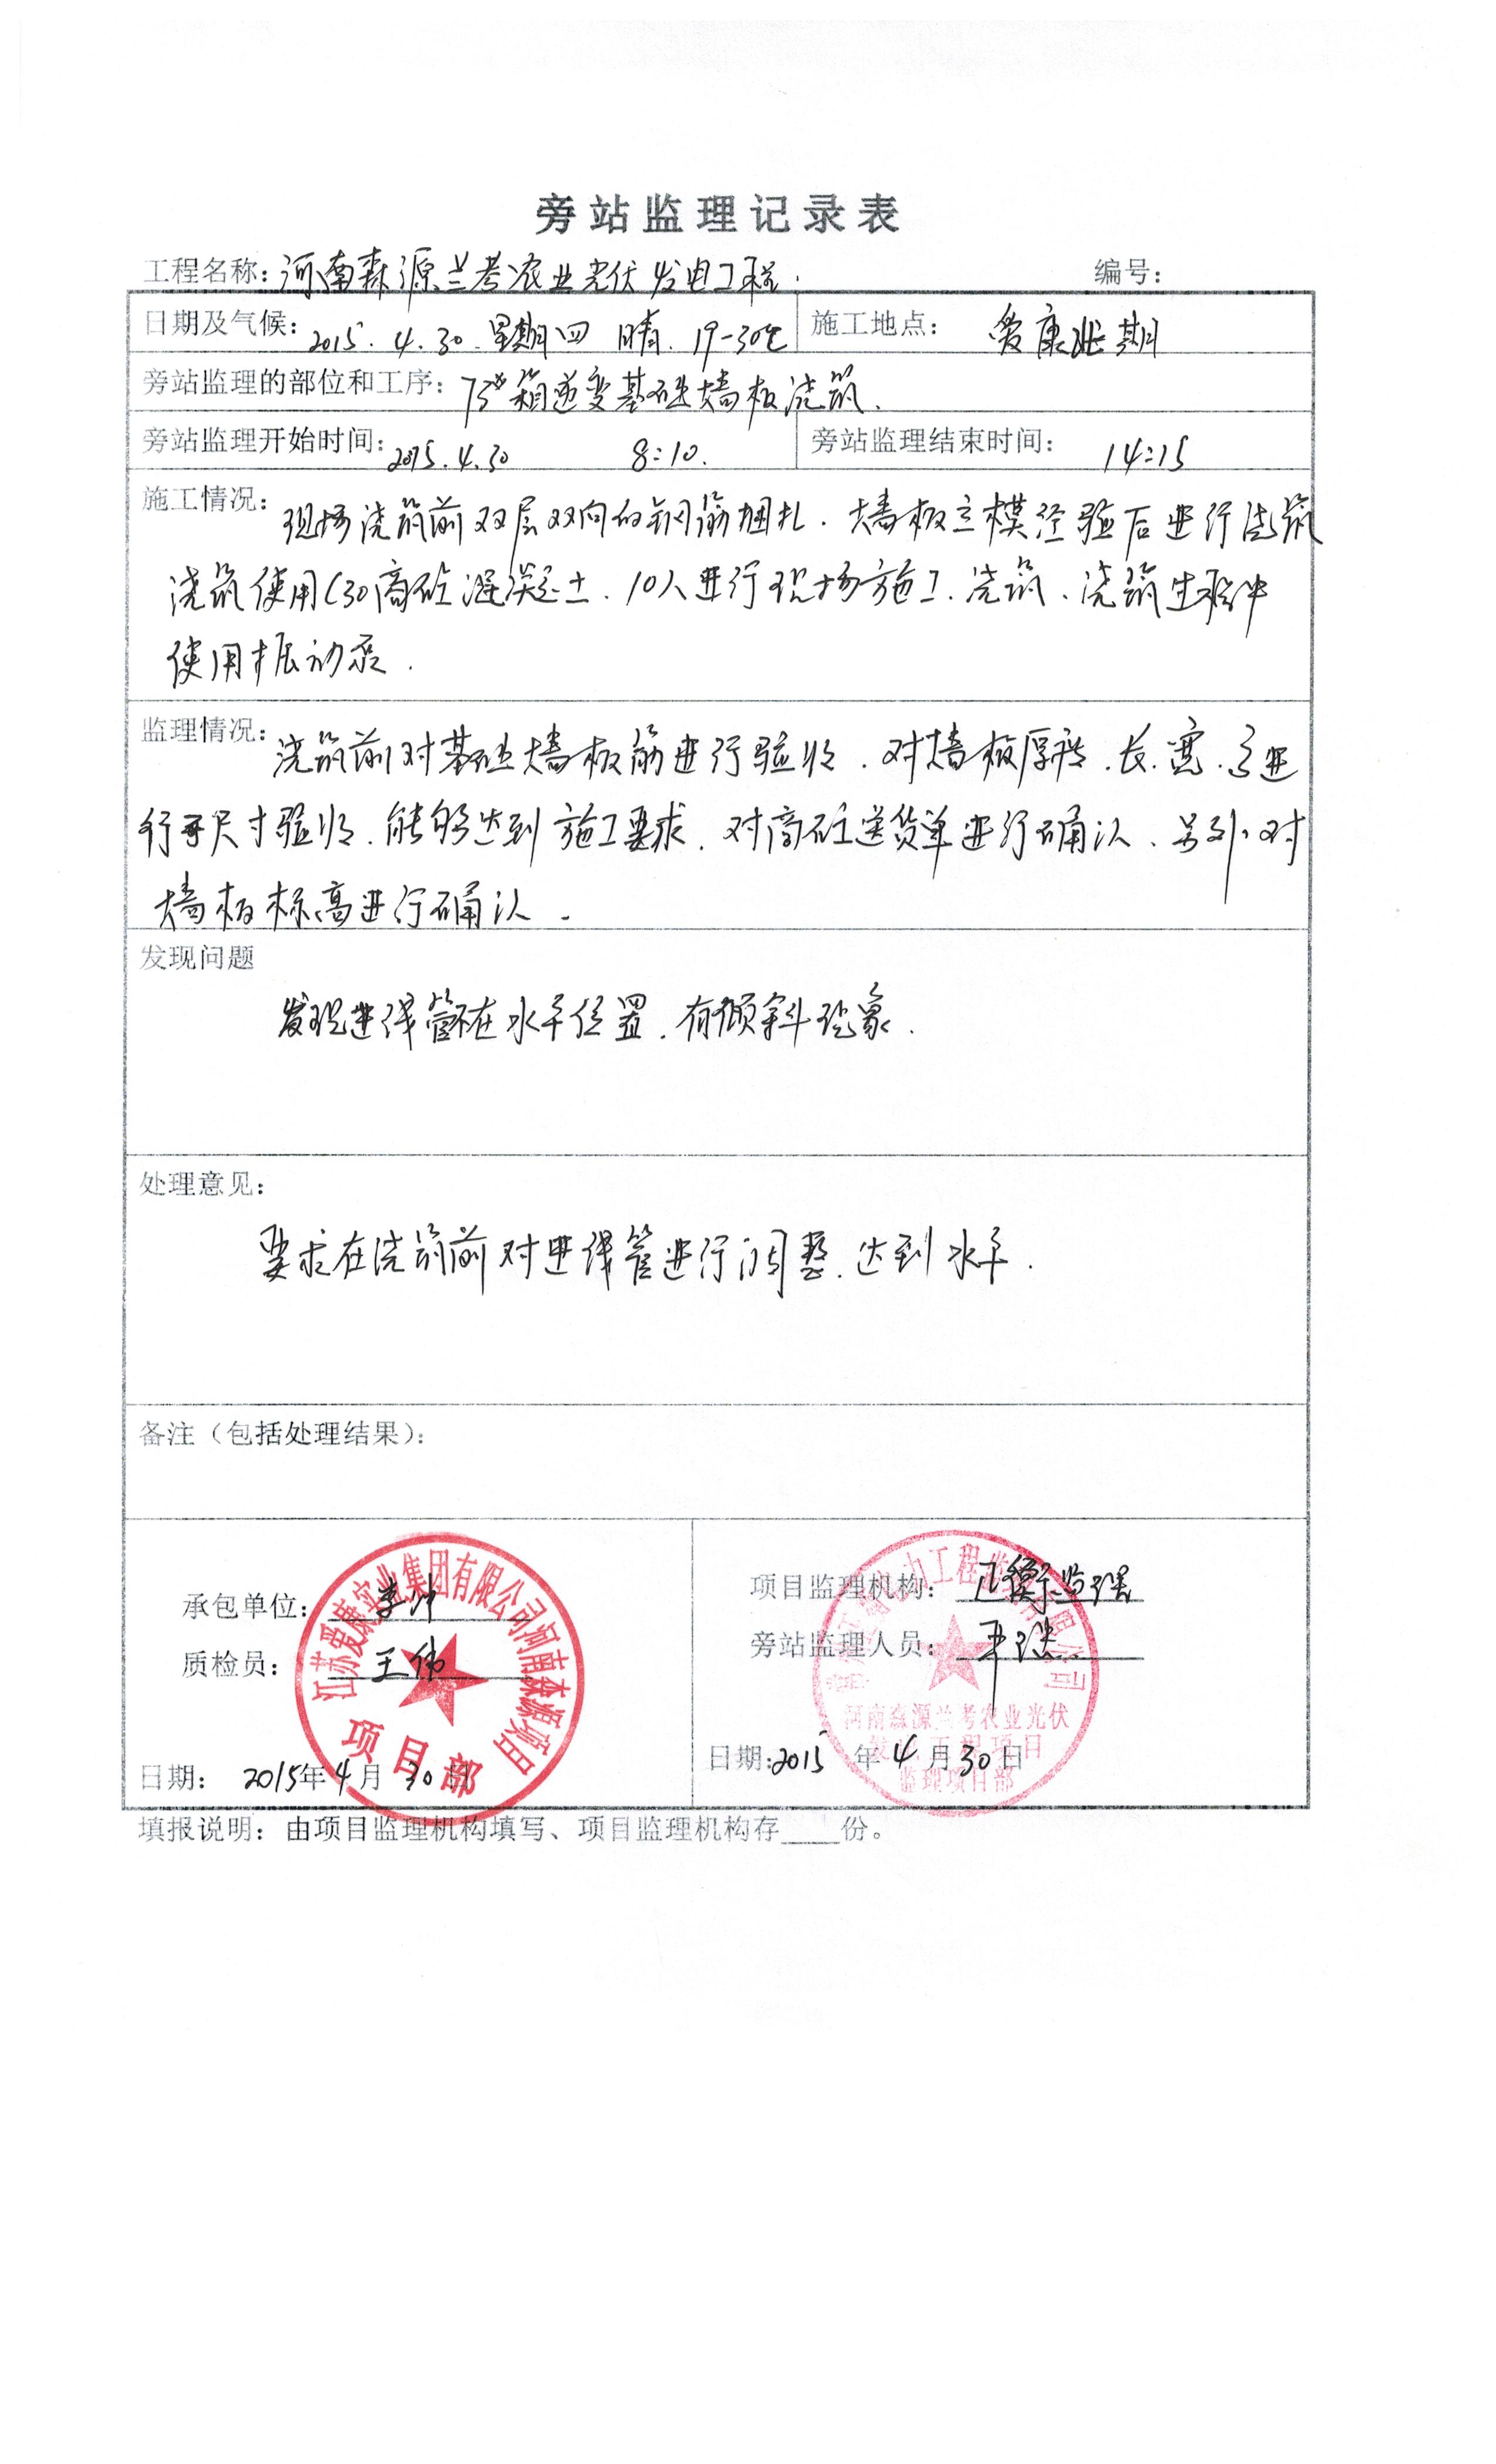 旁站监理记录表
工程名称：河南森源兰考农业光伏发电工程. 编号：
日期及气候：2015.4.30.星期四 晴.19-30℃ 施工地点：爱康 期
旁站监理的部位和工序：75#箱逆变基础墙板浇筑.
旁站监理开始时间：2015.4.30 8:10. 旁站监理结束时间：14:15
施工情况：现场浇筑前双层双向的钢筋捆扎.墙板立模经验后进行浇筑
浇筑使用C30商砼混凝土.10人进行现场施工.浇筑.浇筑过程中
使用振动泵.
监理情况：浇筑前对基础墙板筋进行验收.对墙板厚度.长.宽.高进
行 尺寸验收.能够达到施工要求.对商砼送货单进行确认.另外对
墙板标高进行确认.
发现问题
发现进线管不在水平位置.有倾斜现象.
处理意见：
要求在浇筑前对进线管进行调整.达到水平.
备注（包括处理结果）：
江苏爱康实业集团有限公司河南森源项目
项目部
承包单位：李
质检员：王伟
日期：2015年4月30日
电力工程监理有限公司
河南森源兰考农业光伏
发电工程项目
监理项目部
项目监理机构： 监理
旁站监理人员：
日期：2015年4月30日
填报说明：由项目监理机构填写、项目监理机构存____份。